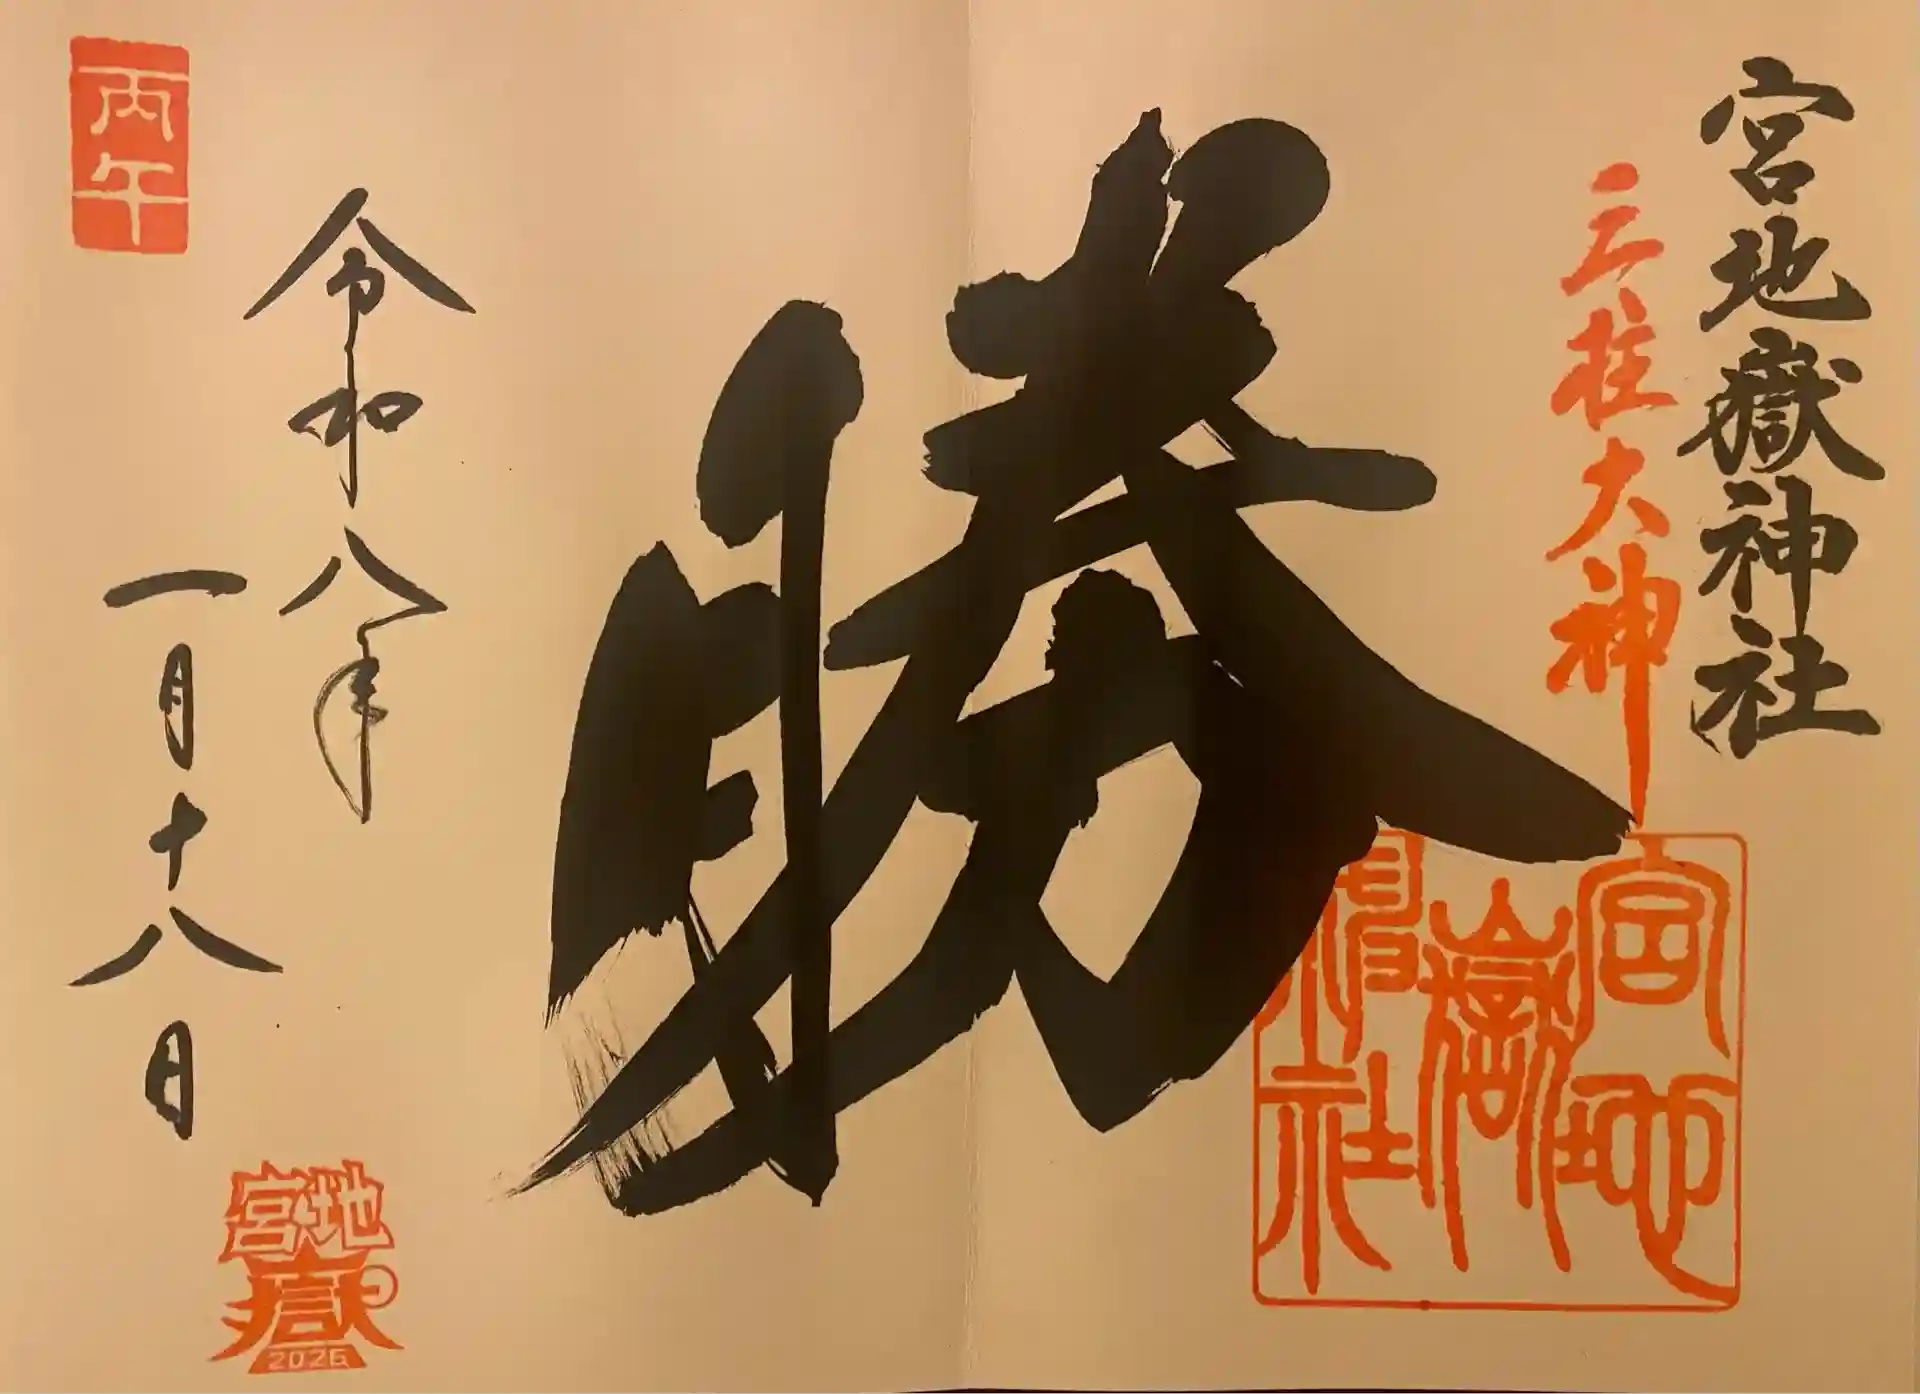 宮地嶽神社
三柱大神
宮地嶽神社
勝
令和八年
一月十八日
丙午
宮地
嶽
2026